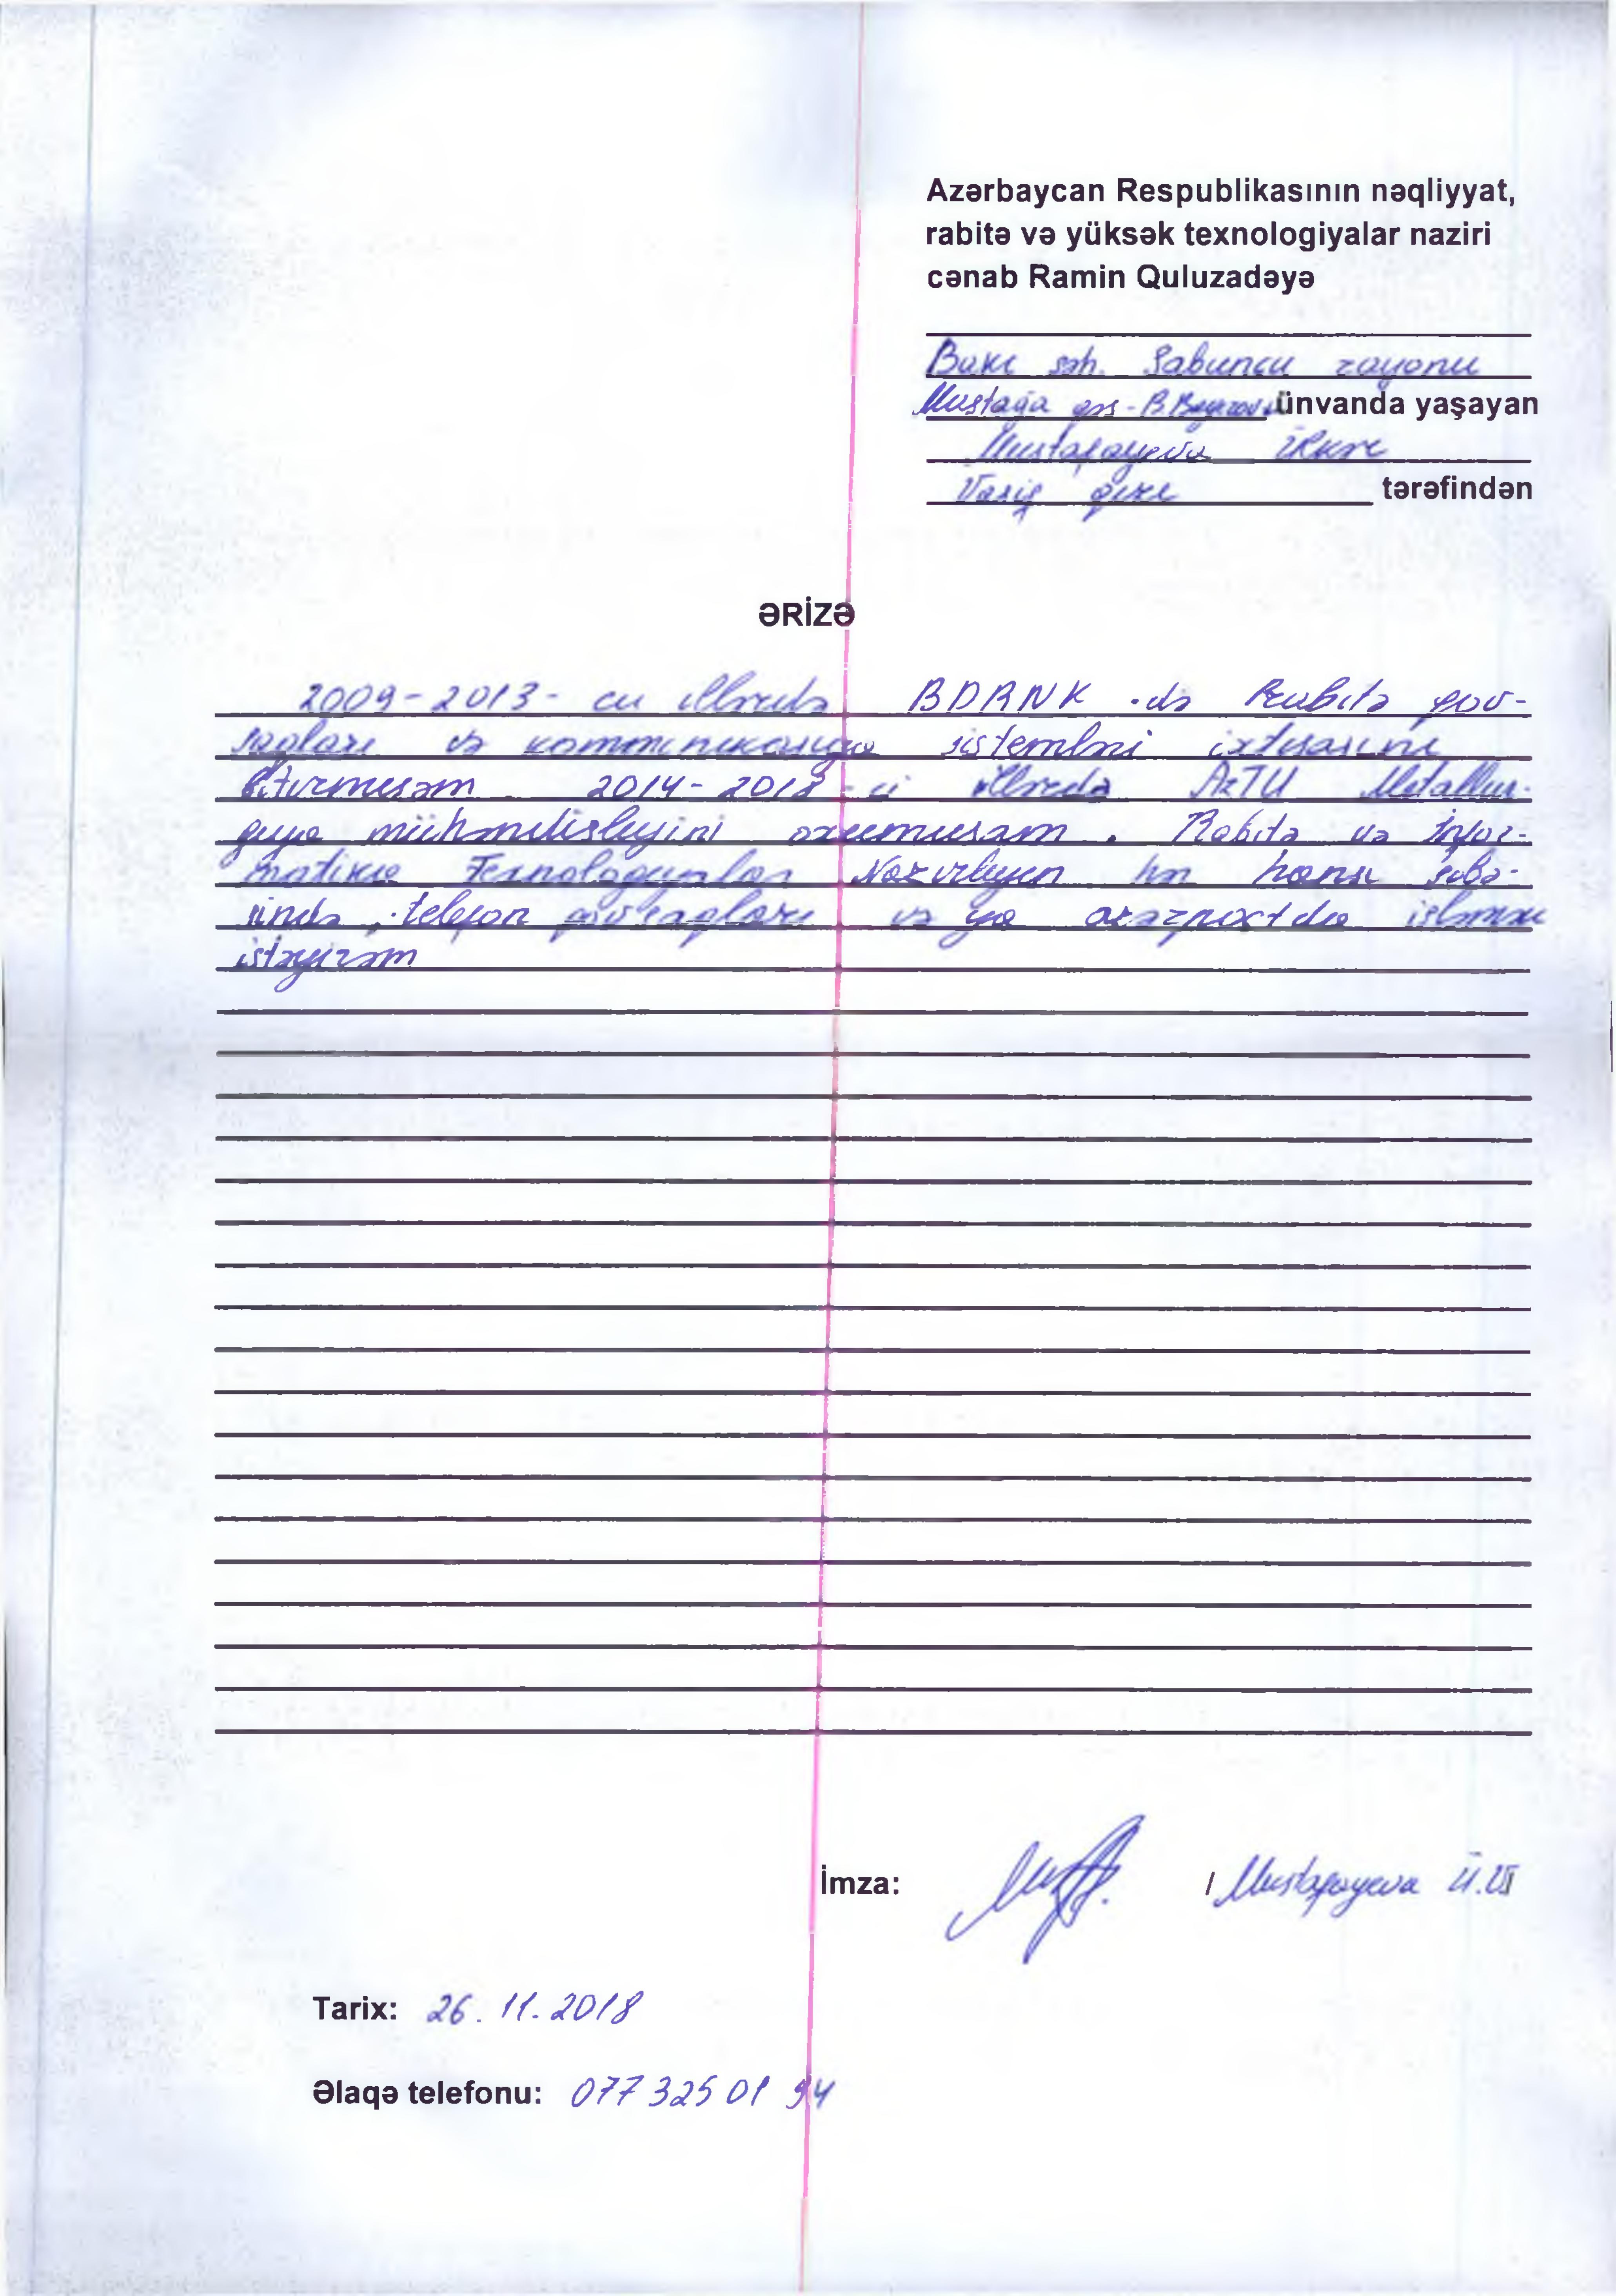 Azərbaycan Respublikasının nəqliyyat,
rabitə və yüksək texnologiyalar naziri
cənab Ramin Quluzadəyə
Bakı şəh. Sabunçu rayonu
Mustağa qəs - B. ünvanda yaşayan
Mustafayeva
Vaqif qızı tərəfindən
ƏRİZƏ
2009-2013-cu illərdə BDRNK-də Rabitə qov-
şaqları və kommunikasiya sistemləri ixtisasını
bitirmişəm 2014-2018-ci illərdə AzTU Metallur-
giya mühəndisliyini oxumuşam. Rabitə və İnfor-
matika Texnologiyaları Nazirliyin hər hansı şöbə-
sində, telefon qovşaqları və ya işləmək
istəyirəm
İmza: / Mustafayeva
Tarix: 26.11.2018
Əlaqə telefonu: 077 325 01 94